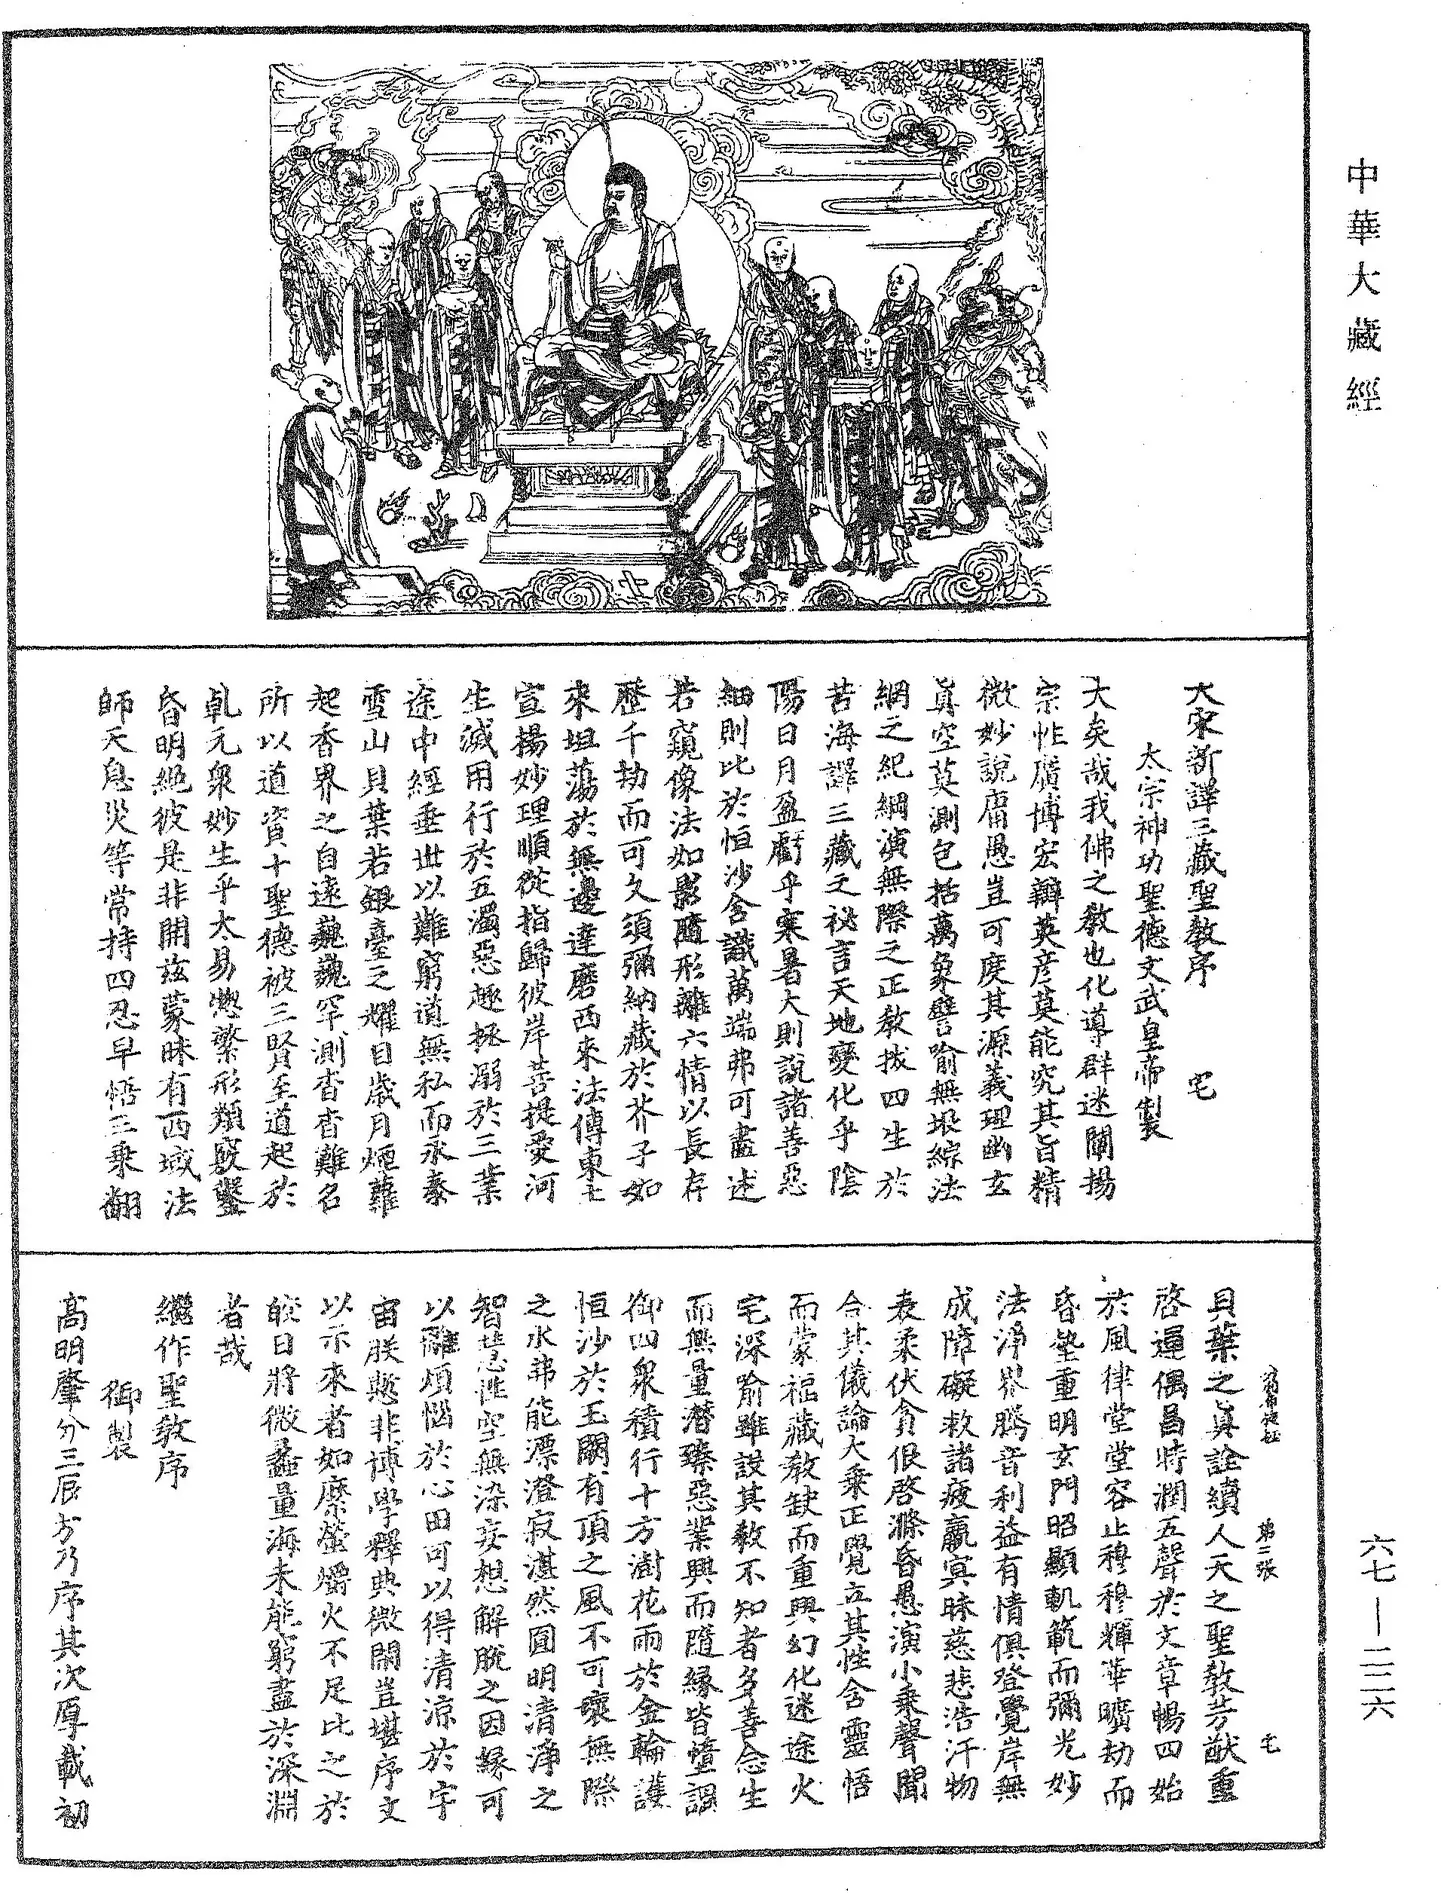 中華大藏經
大宋新譯三藏聖教序 宅
太宗神功聖德文武皇帝製
大矣哉我佛之教也化導群迷闡揚
宗性廣博宏辯英彥莫能究其旨精
微妙說庸愚豈可度其源義理幽玄
真空莫測包括萬象譬喻無垠綜法
網之紀綱演無際之正教拔四生於
苦海譯三藏之祕言天地變化乎陰
陽日月盈虧乎寒暑大則說諸善惡
細則比於恒沙含識萬端弗可盡述
若窺像法如影隨形離六情以長存
歷千劫而可久須彌納藏於芥子如
來坦蕩於無邊達磨西來法傳東土
宣揚妙理順從指歸彼岸菩提愛河
生滅用行於五濁惡趣拯溺於三業
途中經垂世以難窮道無私而永泰
雪山貝葉若銀臺之耀目歲月煙蘿
起香界之自遠巍巍罕測杳杳難名
所以道資十聖德被三賢至道起於
乹元衆妙生乎太易惣繁形類竅鑿
昏明絕彼是非開玆蒙昧有西域法
師天息災等常持四忍早悟三乘翻
貝葉之真詮續人天之聖教芳猷重
啓運偶昌時潤五聲於文章暢四始
於風律堂堂容止穆穆輝華曠劫而
昏墊重明玄門昭顯軌範而彌光妙
法淨界騰音利益有情俱登覺岸無
成障礙救諸疲羸冥昧慈悲浩汗物
表柔伏貪佷啓滌昏愚演小乘聲聞
合其儀論大乘正覺立其性含靈悟
而蒙福藏教缺而重興幻化迷途火
宅深喻雖設其教不知者多善念生
而無量潛臻惡業興而隨緣皆墮調
御四衆積行十方澍花雨於金輪護
恒沙於玉闕有頂之風不可壞無際
之水弗能漂澄寂湛然圓明清淨之
智慧性空無染妄想解脫之因緣可
以離煩惱於心田可以得清涼於宇
宙朕慙非博學釋典微閑豈堪序文
以示來者如縻螢爝火不足比之於
皎日將微蠡量海未能窮盡於深淵
者哉
繼作聖教序
御製
高明肇分三辰方乃序其次厚載初
第二張 宅
六七—二二六